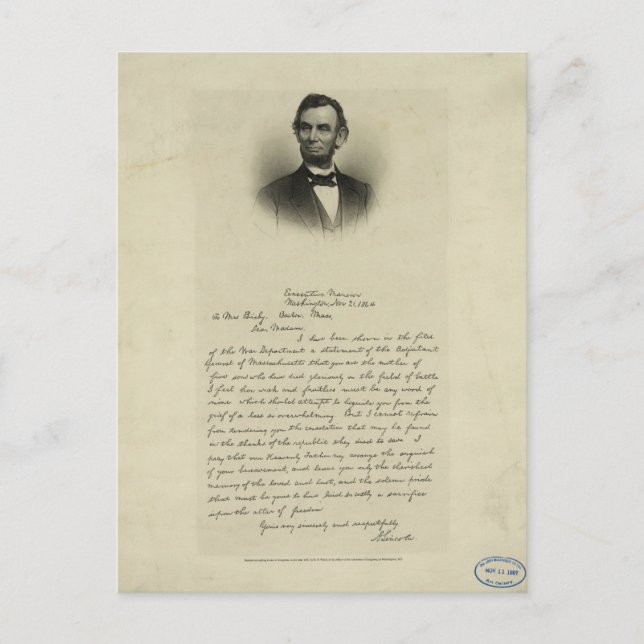 Executive Mansion
Washington, Nov 21, 1864
To Mrs Bixby, Boston, Mass,
Dear Madam,
I have been shown in the files
of the War Department a statement of the Adjutant
General of Massachusetts that you are the mother of
five sons who have died gloriously on the field of battle
I feel how weak and fruitless must be any word of
mine which should attempt to beguile you from the
grief of a loss so overwhelming. But I cannot refrain
from tendering you the consolation that may be found
in the thanks of the republic they died to save. I
pray that our Heavenly Father may assuage the anguish
of your bereavement, and leave you only the cherished
memory of the loved and lost, and the solemn pride
that must be yours to have laid so costly a sacrifice
upon the altar of freedom
Yours very sincerely and respectfully
A. Lincoln.
NOV 11 1897